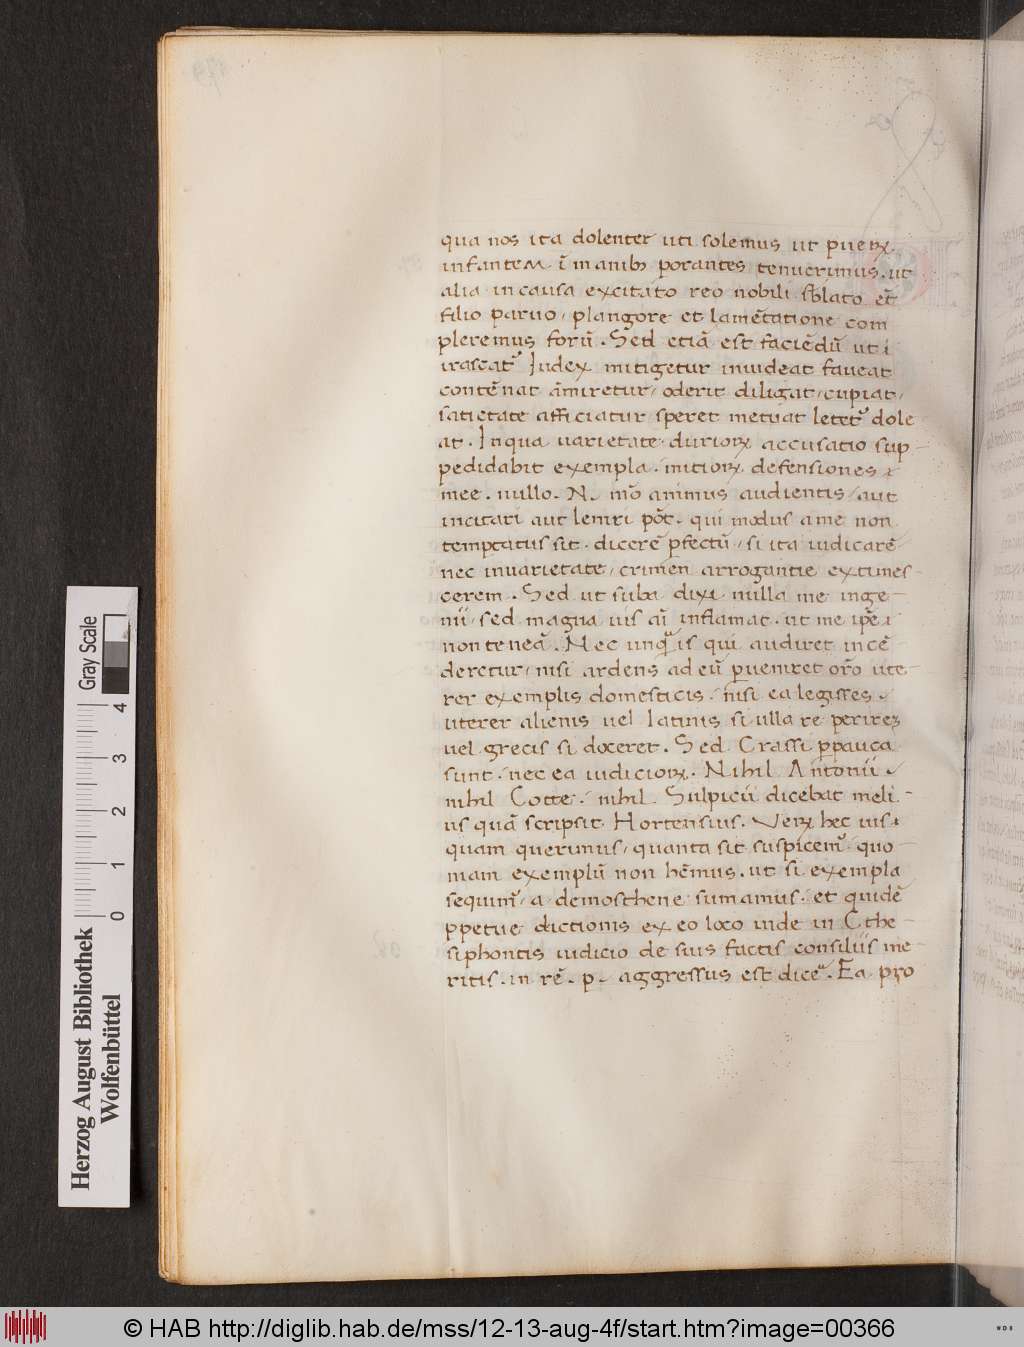 qua nos ita dolenter uti solemus ut pueꝝ
infanteM ī manibꝫ porantes tenuerimus. ut
alia in causa excitato reo nobili sblato et̄
filio paruo, plangore et lamētatione com
pleremus forū. Sed etiā est faciēdū ut i
irascat᷑ Iudex mitigetur inuideat faueat
contēnat āmiretur, oderit diligat, cupiat,
satietate afficiatur speret metuat letet᷑ dole
at. Inqua uarietate durioꝝ accusatio sup-
pedidabit exempla. mitioꝝ defensiones
mee. nullo. N. mō animus audientis, aut
incitari aut leniri pōt. qui modus a me non
temptatus sit. dicerē pfectū, si ita iudicarē
nec inuarietate, crimen arrogantie extimes-
cerem. Sed ut supa dixi nulla me inge-
nii, sed magna uis aī inflamat. ut me ipē
non teneā. Nec unq̄ is qui audiret incē-
deretur, nisi ardens ad eū pueniret orō ute-
rer exemplis domesticis. nisi ea legisses.
uterer alienis uel latinis si ulla re perirēꝫ
uel grecis si doceret. Sed Crassi ppauca
sunt. nec ea iudicioꝝ. Nihil Antonii.
nihil Cotte. nihil Sulpicii dicebat meli-
us quā scripsit Hortensius. Veꝝ hec uis
quam querimus, quanta sit suspicem᷑ quo-
niam exemplū non hēmus. ut si exempla
sequim᷑, a demosthene sumamus. et quidē
ppetue dictionis ex eo loco unde in Cthe-
siphontis iudicio de suis factis consiliis me-
ritis. in rē. p. aggressus est dice᷑. Ea pro
Herzog August Bibliothek
Wolfenbüttel
Gray Scale
0 1 2 3 4
© HAB http://diglib.hab.de/mss/12-13-aug-4f/start.htm?image=00366